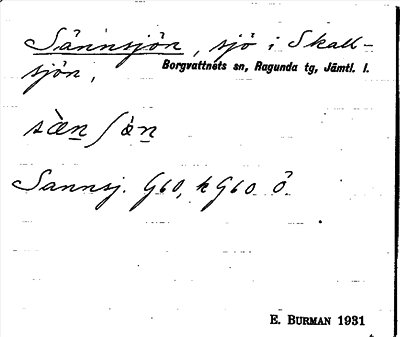 Sännsjön, sjö i Skall-
sjön, Borgvattnets sn, Ragunda tg, Jämtl. l.
sæ̀n ʃò̱n
Sannsj. G60, k G60 Ö
E. BURMAN 1931